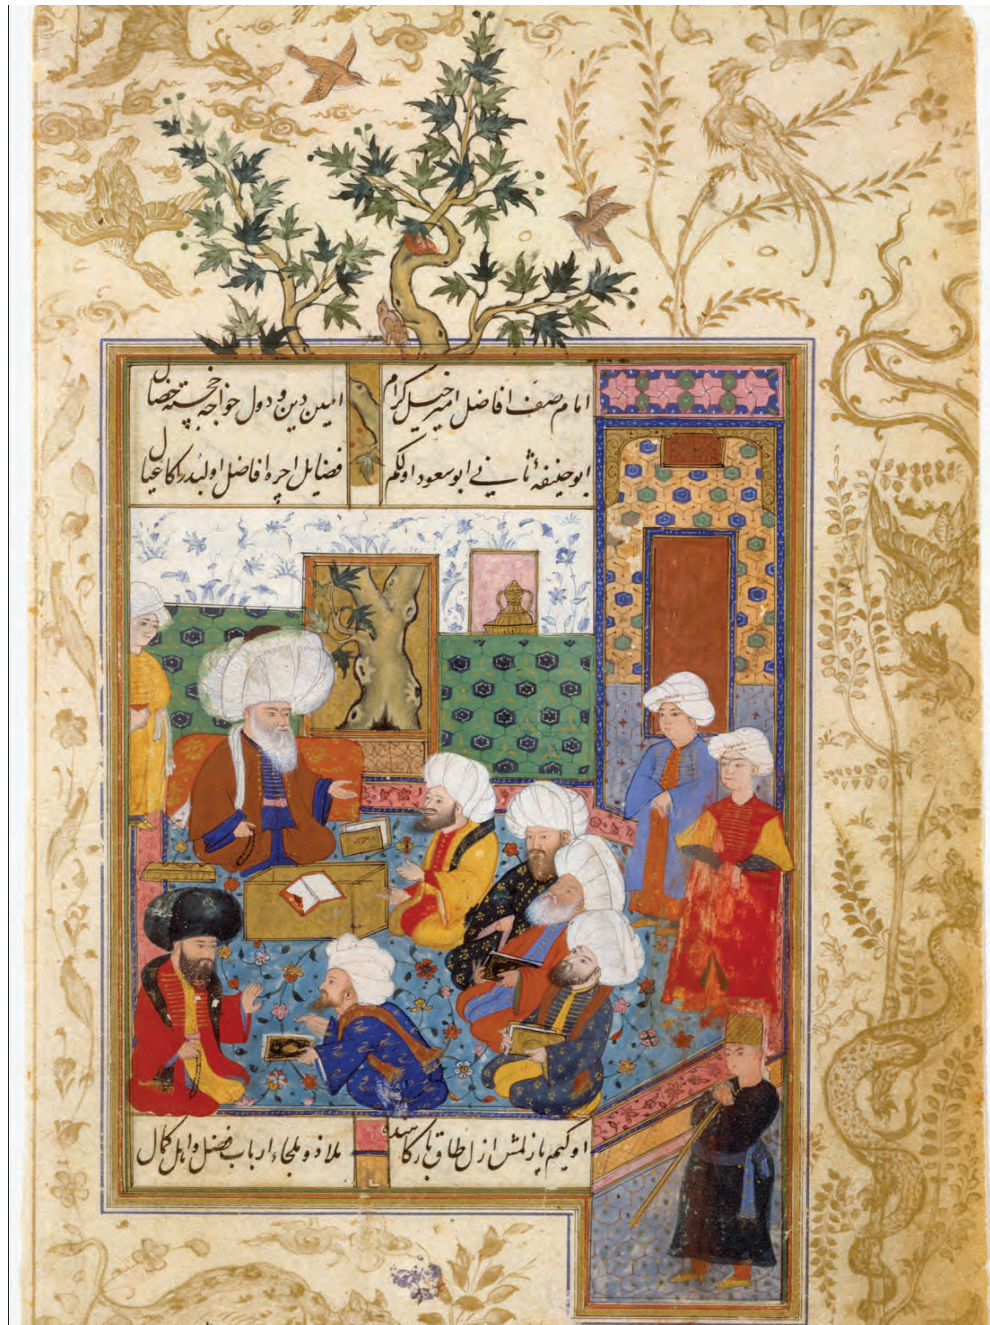 امام صف افاضل امیر خیل کرام
امین دین و دول خواجه خجسته خصال
ابو حنیفهٔ ثانی ابو سعود اولکم
فضایل اچره افاضل اولبدر اکا عیال
اوکیم یازلمش ازل طاق بارکاهنده
ملاذ و ملجاء ارباب فضل و اهل کمال